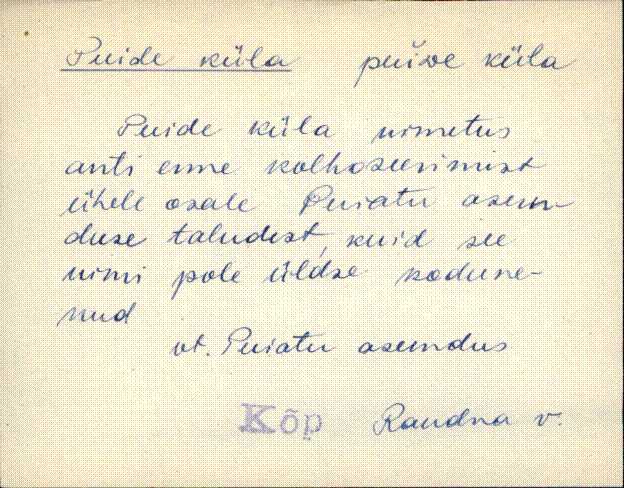 Puide küla puiwe küla
Puide küla nimetus
anti enne kolhoseerimist
ühele osale Puiatu asun-
duse taludest, kuid see
nimi pole üldse kodune-
nud
vt. Puiatu asundus
Kõp Raudna v.